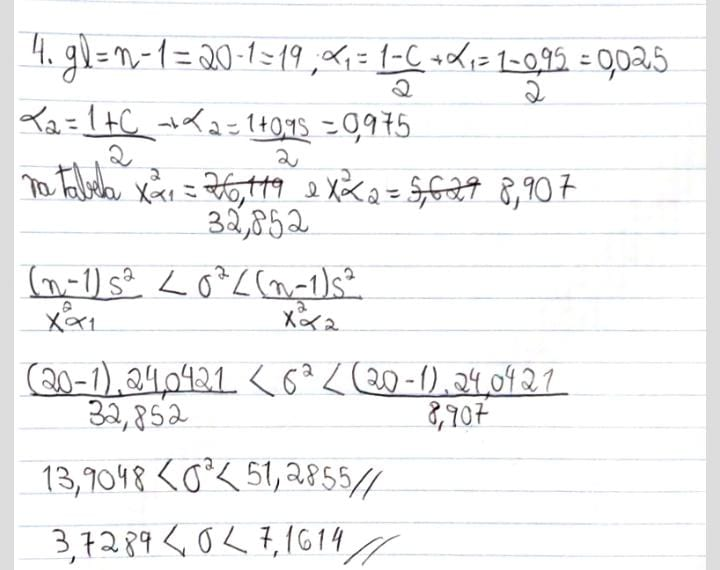 4. gl = n - 1 = 20 - 1 = 19, α₁ = (1-C)/2 → α₁ = (1-0,95)/2 = 0,025
α₂ = (1+C)/2 → α₂ = (1+0,95)/2 = 0,975
na tabela X²α₁ = ~~26,119~~ e X²α₂ = ~~5,629~~ 8,907
32,852
(n-1)s²/X²α₁ < σ² < (n-1)s²/X²α₂
(20-1).24,0421/32,852 < σ² < (20-1).24,0421/8,907
13,9048 < σ² < 51,2855 //
3,7289 < σ < 7,1614 //